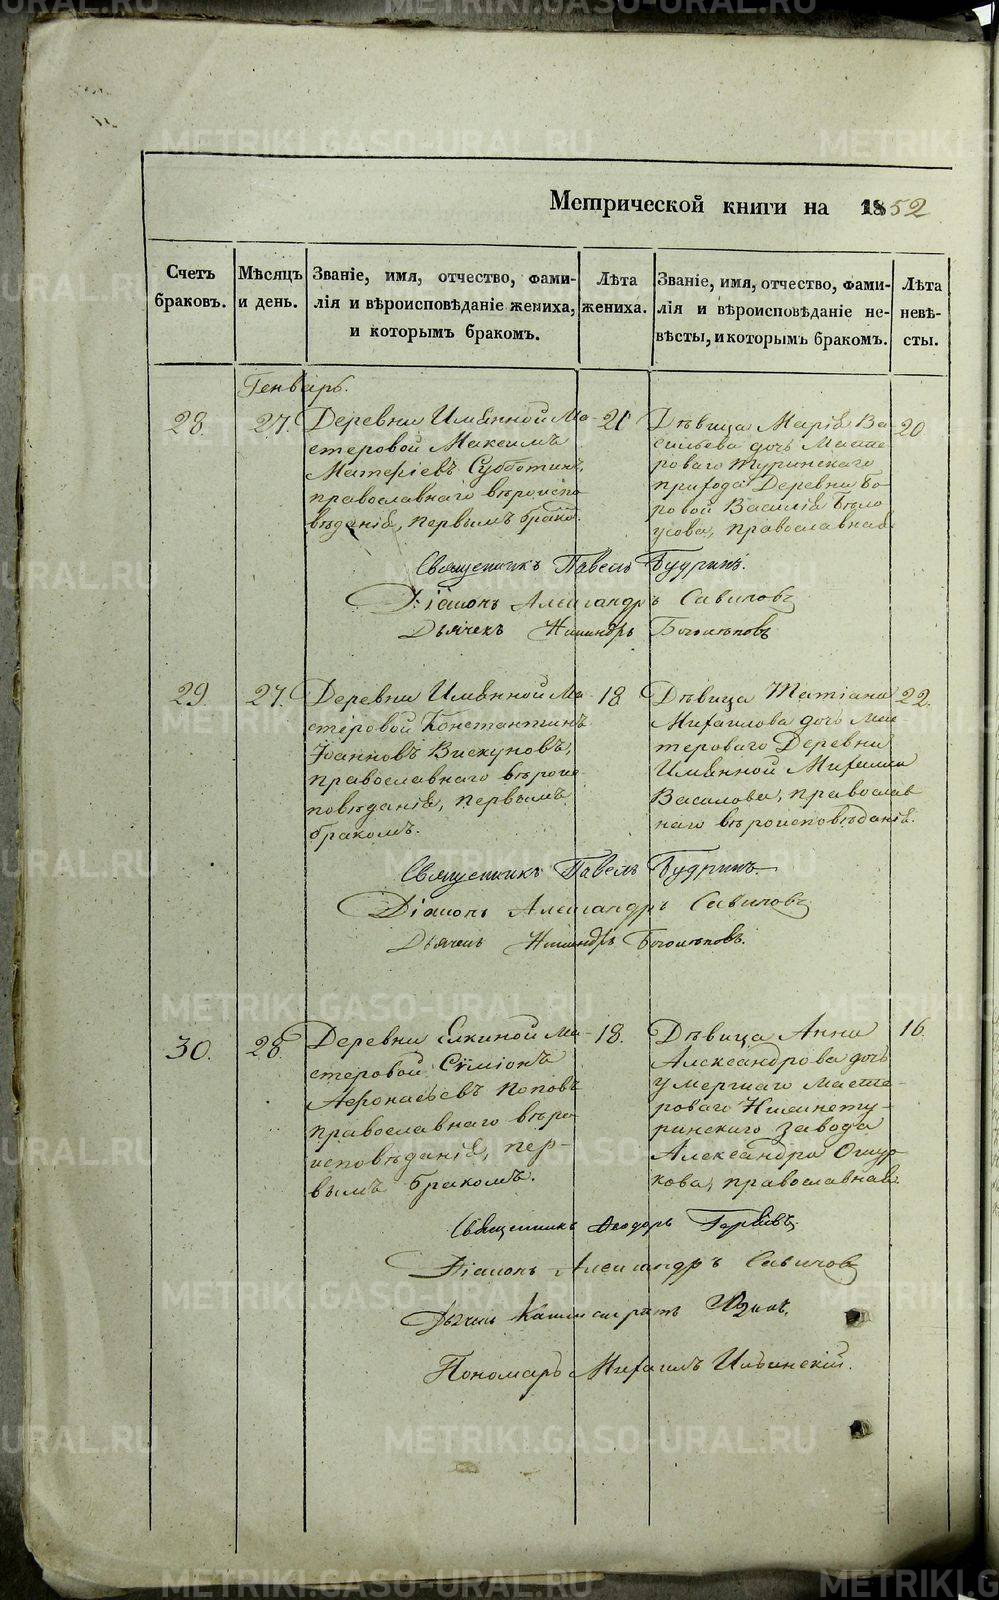 Метрической книги на 1852
Счетъ браковъ.
Мѣсяцъ и день.
Званіе, имя, отчество, фами-
лія и вѣроисповѣданіе жениха,
и которымъ бракомъ.
Лѣта жениха.
Званіе, имя, отчество, фами-
лія и вѣроисповѣданіе не-
вѣсты, и которымъ бракомъ.
Лѣта невѣ-
сты.
Генварь.
28.
27.
Деревни Имянной Ма-
стеровой Максимъ
Матѳѣевъ Субботинъ,
православнаго вѣроиспо
вѣданія, первымъ бракō.
21
Дѣвица Марія Ва
сильева дочь Масте
роваго Туринскаго
прихода Деревни Бо
ровой Василія Бѣло
усова, православная.
20
Священникъ Павелъ Будринъ.
Діаконъ Александръ Савиновъ
Дьячекъ Никандръ Боголѣповъ
29
27.
Деревни Имянной Ма-
стеровой Константинъ
Іоанновъ Вискуновъ,
православнаго вѣроис
повѣданія, первымъ
бракомъ.
18
Дѣвица Татіана
Михаилова дочь Мас
тероваго Деревни
Имянной Михаила
Василова, православ
наго вѣроисповѣданія.
22.
Священникъ Павелъ Будринъ
Діаконъ Александръ Савиновъ
Дьячекъ Никандръ Боголѣповъ.
30.
28.
Деревни Елкиной Ма-
стеровой Сѵмеонъ
Аѳонасьевъ Поповъ
православнаго вѣро
исповѣданія, пер-
вымъ бракомъ.
18.
Дѣвица Анна
Александрова дочь
умершаго Масте-
роваго Нижнету-
ринскаго завода
Александра Ошур
кова, православная.
16.
Священникъ Ѳеодоръ
Діаконъ Александръ Савиновъ
Дьячекъ
Пономарь Михаилъ Ильинскій.
METRIKI.GASO-URAL.RU